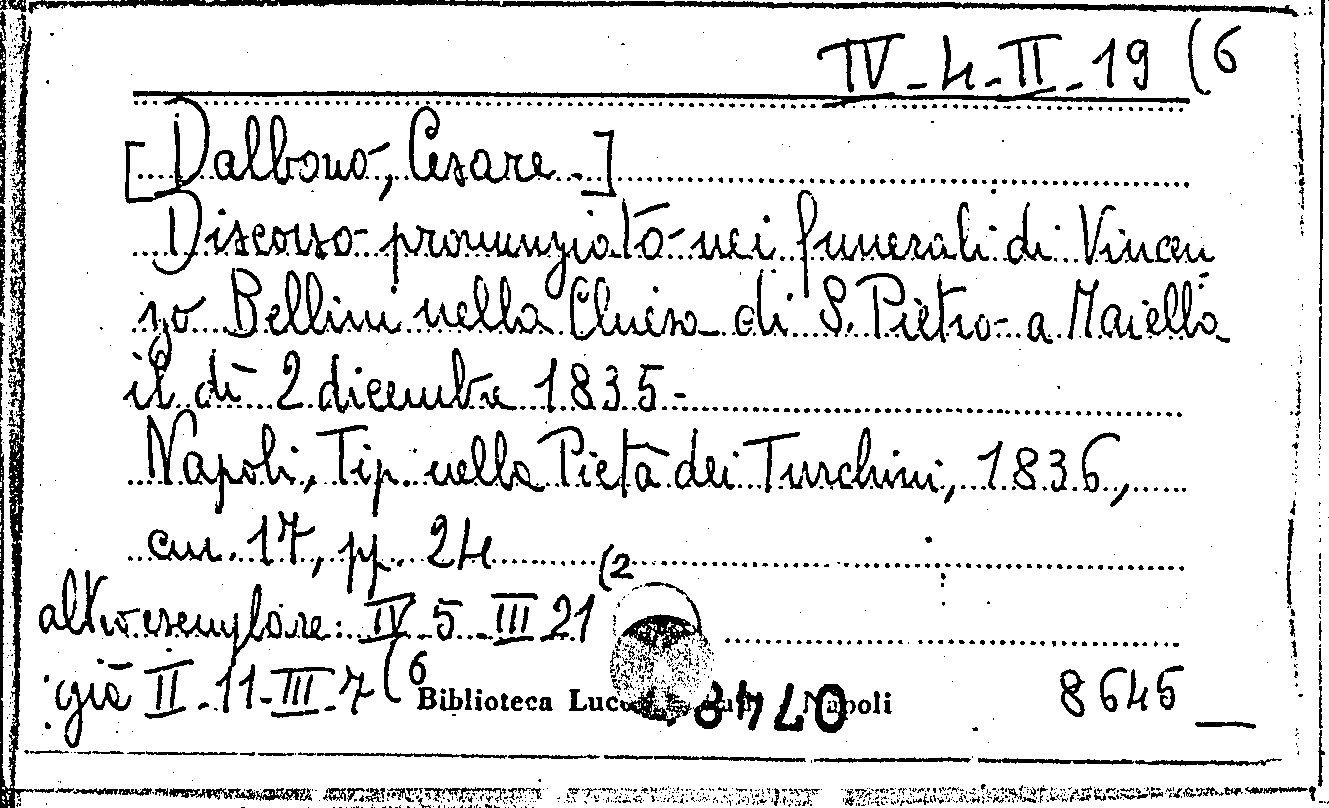 IV-4-II-19 (6
[Dalbono, Cesare.]
Discorso pronunziato nei funerali di Vincen
zo Bellini nella Chiesa di S. Pietro a Maiella
il dì 2 dicembre 1835-
Napoli, Tip. nella Pietà dei Turchini, 1836,
cm. 17, pp. 24
altro esemplare: IV 5 III 21 (2
già II-11-III-7 (6
Biblioteca Napoli
8645